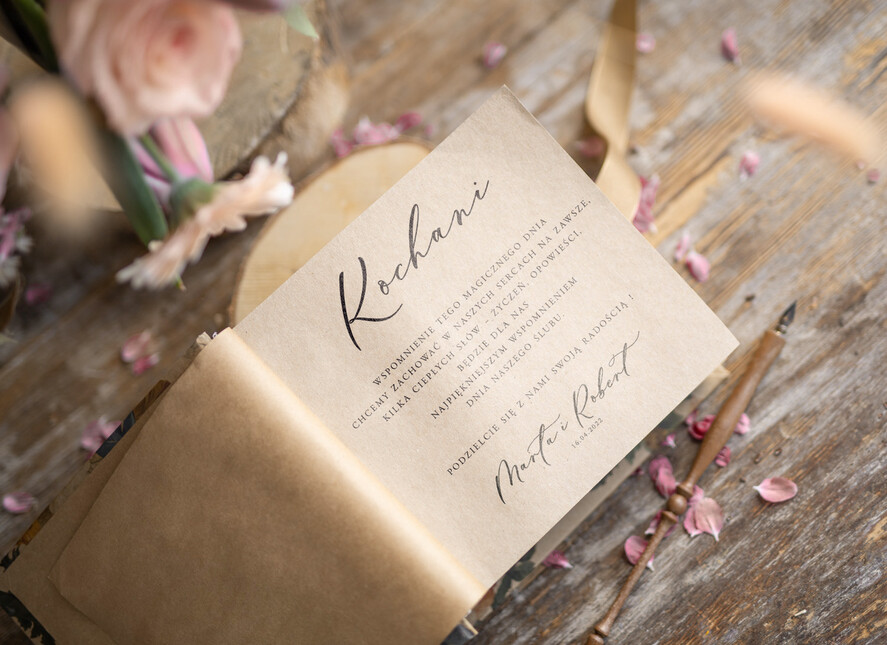 Kochani
WSPOMNIENIE TEGO MAGICZNEGO DNIA
CHCEMY ZACHOWAĆ W NASZYCH SERCACH NA ZAWSZE,
KILKA CIEPŁYCH SŁÓW - ŻYCZEŃ, OPOWIEŚCI,
BĘDZIE DLA NAS
NAJPIĘKNIEJSZYM WSPOMNIENIEM
DNIA NASZEGO ŚLUBU.
PODZIELCIE SIĘ Z NAMI SWOJĄ RADOŚCIĄ !
Marta i Robert
16.04.2022